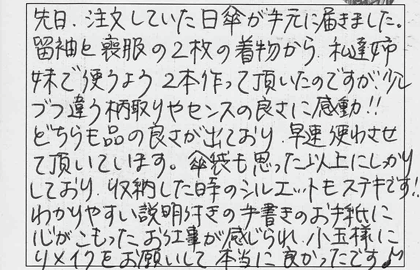 先日、注文していた日傘が手元に届きました。
留袖と喪服の2枚の着物から、私達姉
妹で使うよう2本作って頂いたのですが、少し
づつ違う柄取りやセンスの良さに感動!!
どちらも品の良さが出ており、早速使わさせ
て頂いています。傘袋も思った以上にしっかり
しており、収納した時のシルエットもステキです!!
わかりやすい説明付きの手書きのお手紙に
心がこもったお仕事が感じられ、小玉様に
リメイクをお願いして本当に良かったです♪